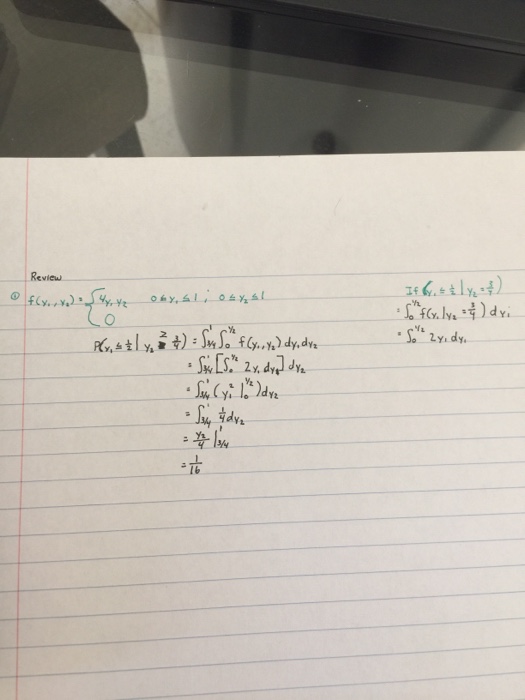 Review
① f(y₁, y₂) = { 4y₁y₂ 0≤y₁≤1; 0≤y₂≤1
0
P(y₁ ≤ 1/2 | y₂ ≥ 3/4) = ∫_{3/4}^{1} ∫_{0}^{1/2} f(y₁, y₂) dy₁ dy₂
= ∫_{3/4}^{1} [∫_{0}^{1/2} 2y₁ dy₁] dy₂
= ∫_{3/4}^{1} (y₁² |_{0}^{1/2}) dy₂
= ∫_{3/4}^{1} 1/4 dy₂
= y₂/4 |_{3/4}^{1}
= 1/16
If (y₁ ≤ 1/2 | y₂ = 3/4)
= ∫_{0}^{1/2} f(y₁ | y₂ = 3/4) dy₁
= ∫_{0}^{1/2} 2y₁ dy₁